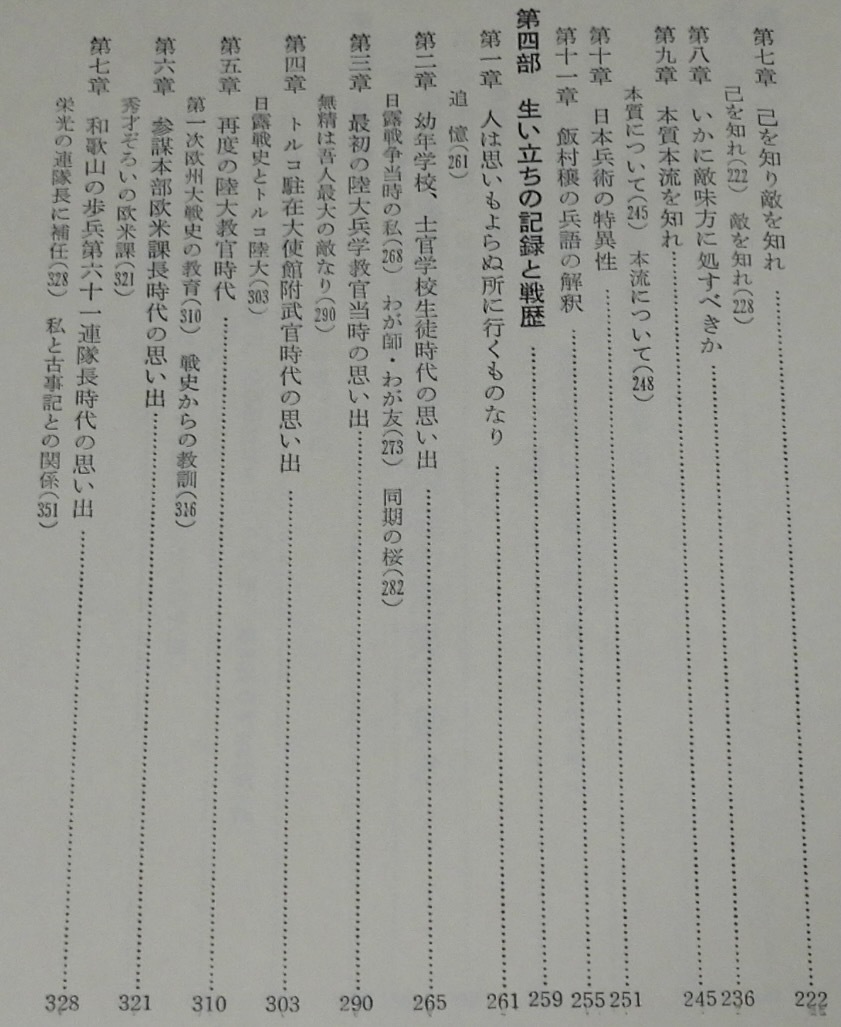 第七章　己を知り敵を知れ……………222
己を知れ(222)　敵を知れ(228)
第八章　いかに敵味方に処すべきか……………236
第九章　本質本流を知れ……………245
本質について(245)　本流について(248)
第十章　日本兵術の特異性……………251
第十一章　飯村穣の兵語の解釈……………255
第四部　生い立ちの記録と戦歴……………259
第一章　人は思いもよらぬ所に行くものなり……………261
追　憶(261)
第二章　幼年学校、士官学校生徒時代の思い出……………265
日露戦争当時の私(268)　わが師・わが友(273)　同期の桜(282)
第三章　最初の陸大兵学教官当時の思い出……………290
無精は吾人最大の敵なり(290)
第四章　トルコ駐在大使館附武官時代の思い出……………303
日露戦史とトルコ陸大(303)
第五章　再度の陸大教官時代……………310
第一次欧州大戦史の教育(310)　戦史からの教訓(316)
第六章　参謀本部欧米課長時代の思い出……………321
秀才ぞろいの欧米課(321)
第七章　和歌山の歩兵第六十一連隊長時代の思い出……………328
栄光の連隊長に補任(328)　私と古事記との関係(351)